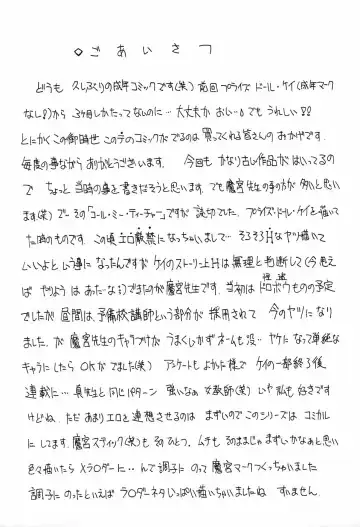 ◇ごあいさつ
どうも 久しぶりの成年コミックです(笑) 前回プライズ・ドール・ケイ(成年マーク
なし?)から 3ヶ月しかたってないのに… 大丈夫か おい…。でも うれしい!!
とにかく この御時世 この手のコミックがでるのは 買ってくれる皆さんの おかげです。
毎度の事ながら ありがとうございます。 今回も かなり古い作品が はいってるの
で ちょっと 当時の事を 書きだそうと思います でも魔宮先生の事の方が 多いと思い
ます(笑) で… その「コール・ミー・ティーチャー」ですが 読切でした。プライズ・ドール・ケイを描いて
た時のものです。この頃 エロ厳禁に なっちゃいまして… そろそろHなヤツ 描いて
いいよと いう事に なったんですが ケイのストーリー上Hは 無理と 判断して(今思え
ば やりようは あったなぁ)できたのが 魔宮先生です。当初は 怪盗ドロボウものの予定
でしたが 昼間は、予備校講師という部分が 採用されて 今のヤツになり
ました。が 魔宮先生のキャラづけが うまくいかず ネームも没… ヤケになって単純な
キャラに したら OKがでました(笑) アンケートも よかった様で ケイの一部終了後
連載に… 真先生と 同じパターン 強いなぁ 女教師(笑) いや 私も 好きです
けどね。ただ あまり エロを 連想させるのは まずいので このシリーズは コミカル
に してます。魔宮スティック(笑)も そのひとつ。ムチも そのままじゃ まずいかなぁと思い
色々描いたら Xラロダーに… んで 調子に のって 魔宮マークつくっちゃいました
調子に のったといえば ラロダーネタ いっぱい 描いちゃいましたね すいません。